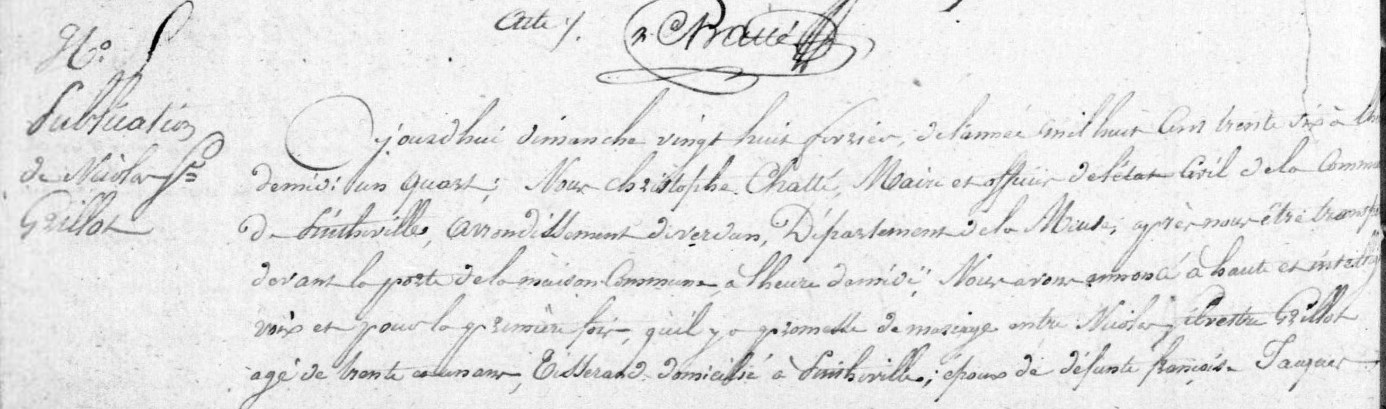 acte ./.
Chatté
N.°
Publication
de Nicolas S.
Grillot
Ojourdhui dimanche vingt huit fevrier, de l'année mil huit Cent trente six à
demidi un quart; Nous christophe Chatté, Maire et officier de l'état Civil de la Commune
De Cuithiville, arrondissement de verdun, Département de la Meuse; après nous être transp
devant la porte de la maison Commune, à l'heure demidi; Nous avons annoncé à haute et intellig
voix et pour la première fois, qu'il y a promesse de mariage entre Nicolas Silvestre Grillot
agé de trente ans, Tisserand domicilié à Cuithiville; époux de défunte françoise Jacques